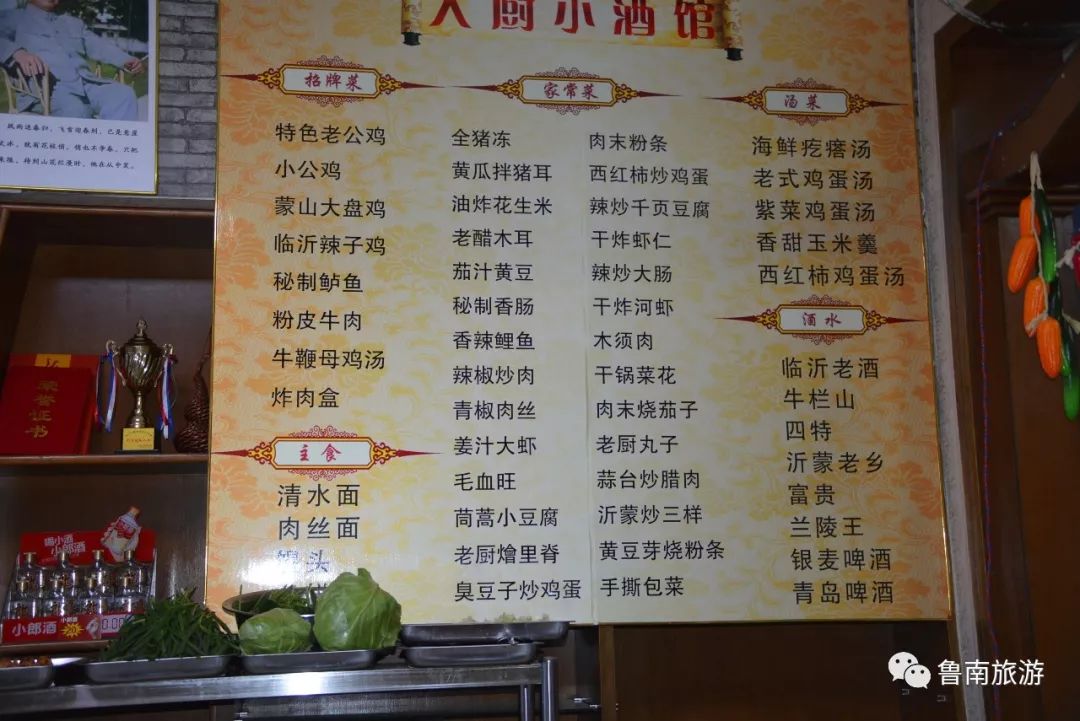 大厨小酒馆
招牌菜
特色老公鸡
小公鸡
蒙山大盘鸡
临沂辣子鸡
秘制鲈鱼
粉皮牛肉
牛鞭母鸡汤
炸肉盒
主食
清水面
肉丝面
馒头
家常菜
全猪冻
黄瓜拌猪耳
油炸花生米
老醋木耳
茄汁黄豆
秘制香肠
香辣鲤鱼
辣椒炒肉
青椒肉丝
姜汁大虾
毛血旺
茼蒿小豆腐
老厨燴里脊
臭豆子炒鸡蛋
肉末粉条
西红柿炒鸡蛋
辣炒千页豆腐
干炸虾仁
辣炒大肠
干炸河虾
木须肉
干锅菜花
肉末烧茄子
老厨丸子
蒜台炒腊肉
沂蒙炒三样
黄豆芽烧粉条
手撕包菜
汤菜
海鲜疙瘩汤
老式鸡蛋汤
紫菜鸡蛋汤
香甜玉米羹
西红柿鸡蛋汤
酒水
临沂老酒
牛栏山
四特
沂蒙老乡
富贵
兰陵王
银麦啤酒
青岛啤酒
荣誉证书
喝小酒
小郎酒
小郎酒
鲁南旅游